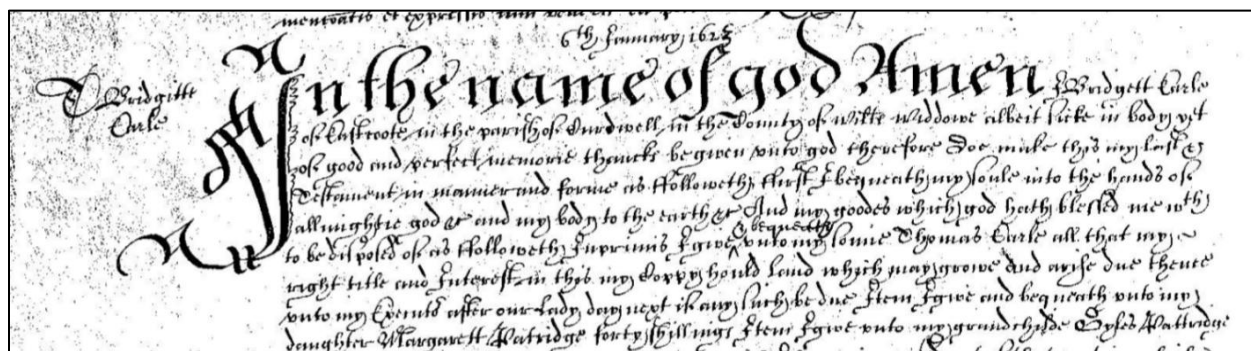 6th January 1623
T Bridgitte
Earle
In the name of god Amen I Bridgett Earle
of Eastcoote in the parish of Curdwell in the County of Wilts Widdowe albeit sicke in body yet
of good and perfect memorie thancks be given unto god therefore doe make this my last
Testament in manner and forme as ffolloweth ffirst I bequeath my soule into the hands of
allmightie god &c and my body to the earth &c And my goodes which god hath blessed me wth
to be disposed of as ffolloweth Inprimis I give & bequeath unto my sonne Thomas Earle all that my
right title and Interest in this my Coppy hould land which may growe and arise due thence
unto my Executor after our Lady day next if any such be due Item I give and bequeath unto my
daughter Margarett Patridge forty shillings Item I give unto my grandchilde Gyles Pattridge